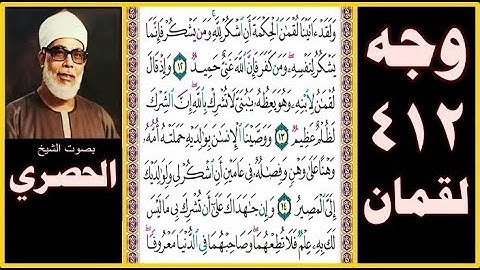 وجه
٤١٢
لقمان
وَلَقَدْ ءَاتَيْنَا لُقْمَٰنَ ٱلْحِكْمَةَ أَنِ ٱشْكُرْ لِلَّهِ وَمَن يَشْكُرْ فَإِنَّمَا
يَشْكُرُ لِنَفْسِهِۦ وَمَن كَفَرَ فَإِنَّ ٱللَّهَ غَنِىٌّ حَمِيدٌ ١٢ وَإِذْ قَالَ
لُقْمَٰنُ لِٱبْنِهِۦ وَهُوَ يَعِظُهُۥ يَٰبُنَىَّ لَا تُشْرِكْ بِٱللَّهِ إِنَّ ٱلشِّرْكَ
لَظُلْمٌ عَظِيمٌ ١٣ وَوَصَّيْنَا ٱلْإِنسَٰنَ بِوَٰلِدَيْهِ حَمَلَتْهُ أُمُّهُۥ
وَهْنًا عَلَىٰ وَهْنٍ وَفِصَٰلُهُۥ فِى عَامَيْنِ أَنِ ٱشْكُرْ لِى وَلِوَٰلِدَيْكَ
إِلَىَّ ٱلْمَصِيرُ ١٤ وَإِن جَٰهَدَاكَ عَلَىٰٓ أَن تُشْرِكَ بِى مَا لَيْسَ
لَكَ بِهِۦ عِلْمٌ فَلَا تُطِعْهُمَا وَصَاحِبْهُمَا فِى ٱلدُّنْيَا مَعْرُوفًا
بصوت الشيخ
الحصري